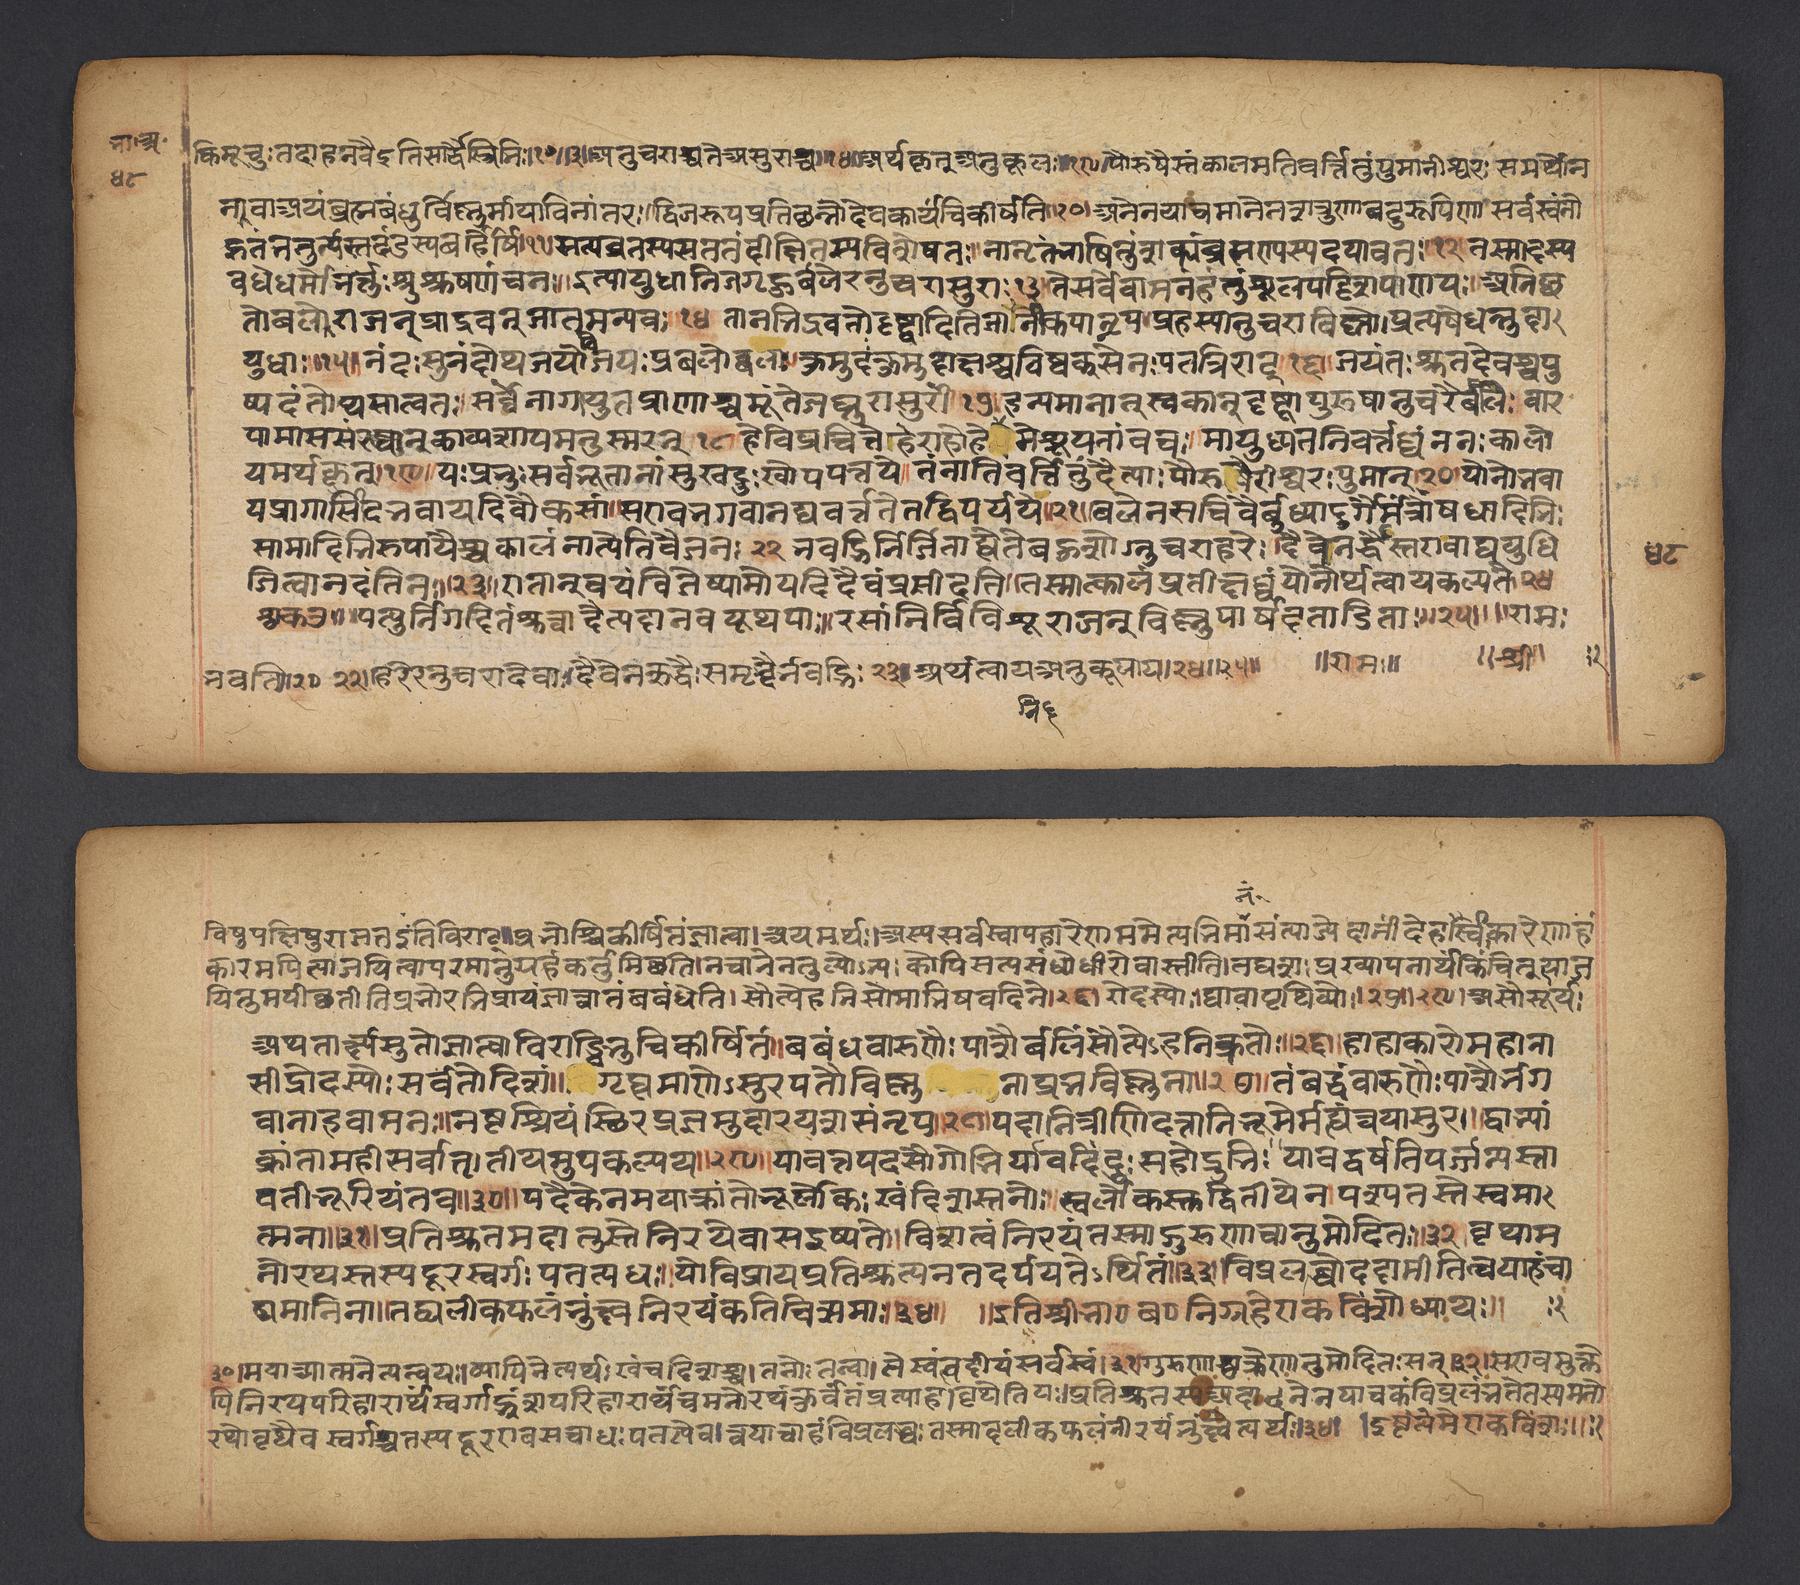 भा॰ अ॰
४८
किमूचुः तदाह नवै इति सार्द्धैस्त्रिभिः ॥१०॥ ॥अनुचराश्च ते असुराश्च ॥१४॥ अर्थकृत् अनुकूलः ॥१९॥ पौरुषैस्तं कालमतिवर्त्तितुं पुमानीश्वरः समर्थो न
नवा अयं ब्रह्मबंधुर्विष्णुर्मायाविनां वरः ॥ द्विजरूपप्रतिछन्नो देवकार्यं चिकीर्षति ॥१०॥ अनेन याचमानेन शत्रुणा बटुरूपिणा ॥ सर्वस्वं नो
हृतं भर्तुर्न्यस्तदंडस्य बर्हिषि ॥११॥ सत्यव्रतस्य सततं दीक्षितस्य विशेषतः ॥ नानृतं भाषितुं शक्यं ब्रह्मण्यस्य दयावतः ॥१२॥ तस्मादस्य
वधे धर्मो भर्त्तुः शुश्रूषणं च नः ॥ इत्यायुधानि जगृहुर्बलेरनुचरासुराः १३ ते सर्वे वामनं हंतुं शूलपट्टिशपाणयः ॥ अनिछ
तो बलो राजन् प्राद्रवन् जातमन्यवः १४ तानभिद्रवतो दृष्ट्वा दितिजानीकपान् नृप प्रहस्यानुचरा विष्णोः प्रत्यषेधन्नुदा
युधाः ॥१५॥ नंदः सुनंदोथ जयो विजयः प्रबलो बलः कुमुदः कुमुदाक्षश्च विष्वक्सेनः पतत्रिराट् १६ जयंतः श्रुतदेवश्च पु
ष्पदंतोथ सात्वतः सर्वे नागायुतप्राणाश्चमूं ते जघ्नुरासुरीं १७ हन्यमानान् स्वकान् दृष्ट्वा पुरुषानुचरैर्बलिः वार
यामास संरब्धान् काव्यशापमनुस्मरन् १८ हे विप्रचित्ते हे राहो हे नेमे श्रूयतां वचः मा युध्यत निवर्त्तध्वं न नः कालो
यमर्थकृत् ॥१९॥ यः प्रभुः सर्वभूतानां सुखदुःखोपपत्तये तं नातिवर्त्तितुं दैत्याः पौरुषैरीश्वरः पुमान् २० यो नो भवा
य प्रागासीदभवाय दिवौकसां ॥ स एव भगवानद्य वर्त्तते तद्विपर्ययं ॥२१॥ बलेन सचिवैर्बुध्या दुर्गैर्मंत्रौषधादिभिः
सामादिभिरुपायैश्च कालं नात्येति वै जनः २२ भवद्भिर्निर्जिता ह्येते बहुशोनुचरा हरेः ॥ दैवेनर्द्धैस्त एवाद्य युधि
जित्वा नदंति नः ॥२३॥ एतान् वयं विजेष्यामो यदि दैवं प्रसीदति ॥ तस्मात्कालं प्रतीक्षध्वं यो नोर्थत्वाय कल्पते २४
शुक उ॰ ॥ पत्युर्निगदितं श्रुत्वा दैत्यदानवयूथपाः ॥ रसां निर्विविशू राजन् विष्णुपार्षदताडिताः ॥२५॥ राम
भवति ॥२० २२॥ हरेरनुचरा देवाः दैवेन ऋद्धैः समृद्धैर्भवद्भिः २३ अर्थत्वाय अनुकूपाय ॥२४॥२५॥ ॥रामः॥ ॥श्री॥
४८
विषुपक्षिषु राजत इति विराट् ॥ प्रभोश्चिकीर्षितं ज्ञात्वा ॥ अयमर्थः ॥ अस्य सर्वस्वापहारेण ममेत्यभिमानं संत्याज्य इदानीं देहस्वीकारेणाहं
कारमपि त्याजयित्वा परमानुग्रहं कर्त्तुमिछति ॥ न चानेन तुल्योन्यः कोपि सत्यसंधो धीरो वास्तीति ॥ तद्यशः प्रख्यापनार्थं किंचित् त्याज
यितुमपीछतीति प्रभोरभिप्रायं ज्ञात्वा तं बबंधेति ॥ सौत्येहनि सोमाभिषवदिने ॥२६॥ रोदस्योः द्यावापृथिव्योः ॥२७॥२९॥ असौ सूर्यः
अथ तार्क्ष्यसुतो ज्ञात्वा विराट् प्रभुचिकीर्षितं ॥ बबंध वारुणैः पाशैर्बलिं सौत्येऽहनि क्रतौ ॥२६॥ हाहाकारो महाना
सीद्रोदस्योः सर्वतो दिशं ॥ गृह्यमाणेऽसुरपतौ विष्णुना प्रभविष्णुना ॥२७॥ तं बद्धं वारुणैः पाशैर्भग
वानाह वामनः ॥ नष्टश्रियं स्थिरप्रज्ञमुदारयशसं नृप ॥२८॥ पदानि त्रीणि दत्तानि भूमेर्मह्यं त्वयासुर ॥ द्वाभ्यां
क्रांता मही सर्वा तृतीयमुपकल्पय ॥२९॥ यावत्तपदसौ गोभिर्यावदिंदुः सहोडुभिः ॥ यावद्वर्षति पर्जन्यस्ता
वती भूरियं तव ॥३०॥ पदैकेन मया क्रांतो भूर्लोकः खं दिशस्तनोः ॥ स्वर्लोकस्तु द्वितीयेन पश्यतस्ते स्वमा
त्मना ॥३१॥ प्रतिश्रुतमदातुस्ते निरये वास इष्यते ॥ विश त्वं निरयं तस्माद्गुरुणा चानुमोदितः ॥३२ वृथा म
नोरथस्तस्य दूरस्वर्गः पतत्यधः ॥ यो विप्राय प्रतिश्रुत्य न तदर्पयतेऽर्थितं ॥३३॥ विप्रलब्धो ददामीति त्वयाहं चा
ढ्यमानिना ॥ तद्व्यलीकफलं भुंक्ष्व निरयं कतिचित्समाः ॥३४॥ ॥इति श्रीभा॰ ब॰ निग्रहे एकविंशोध्यायः ॥
३०॥ मया व्याप्तात्मनेत्यन्वयः ॥ व्यापिनेत्यर्थः खं च दिशश्च ॥ तनोः तन्वा ॥ ते स्वं त्वदीयं सर्वस्वं ॥३१॥ गुरुणा शुक्रेणानुमोदितः सन् ॥३२॥ स एवमुक्तो
पि निरयपरिहारार्थं स्वर्गाद्भ्रंशपरिहारार्थं च मनोरथं कुर्वंतं प्रत्याह वृथेति यः प्रतिश्रुतस्य
रथो वृथैव स्वर्गश्च तस्य दूर एव स चाधः पतत्येव त्वया चाहं विप्रलब्धः तस्माद्व्यलीकफलं निरयं भुंक्ष्वेत्यर्थः ॥३४॥